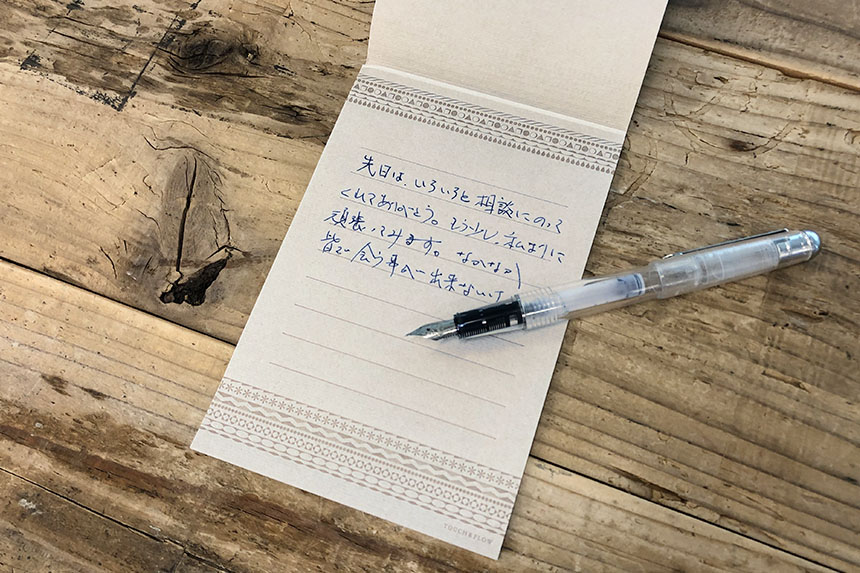 先日は、いろいろと相談にのって
くれてありがとう。もう少し、私なりに
頑張ってみます。なかなか
皆で会う事が出来ないけ
TOUCH & FLOW